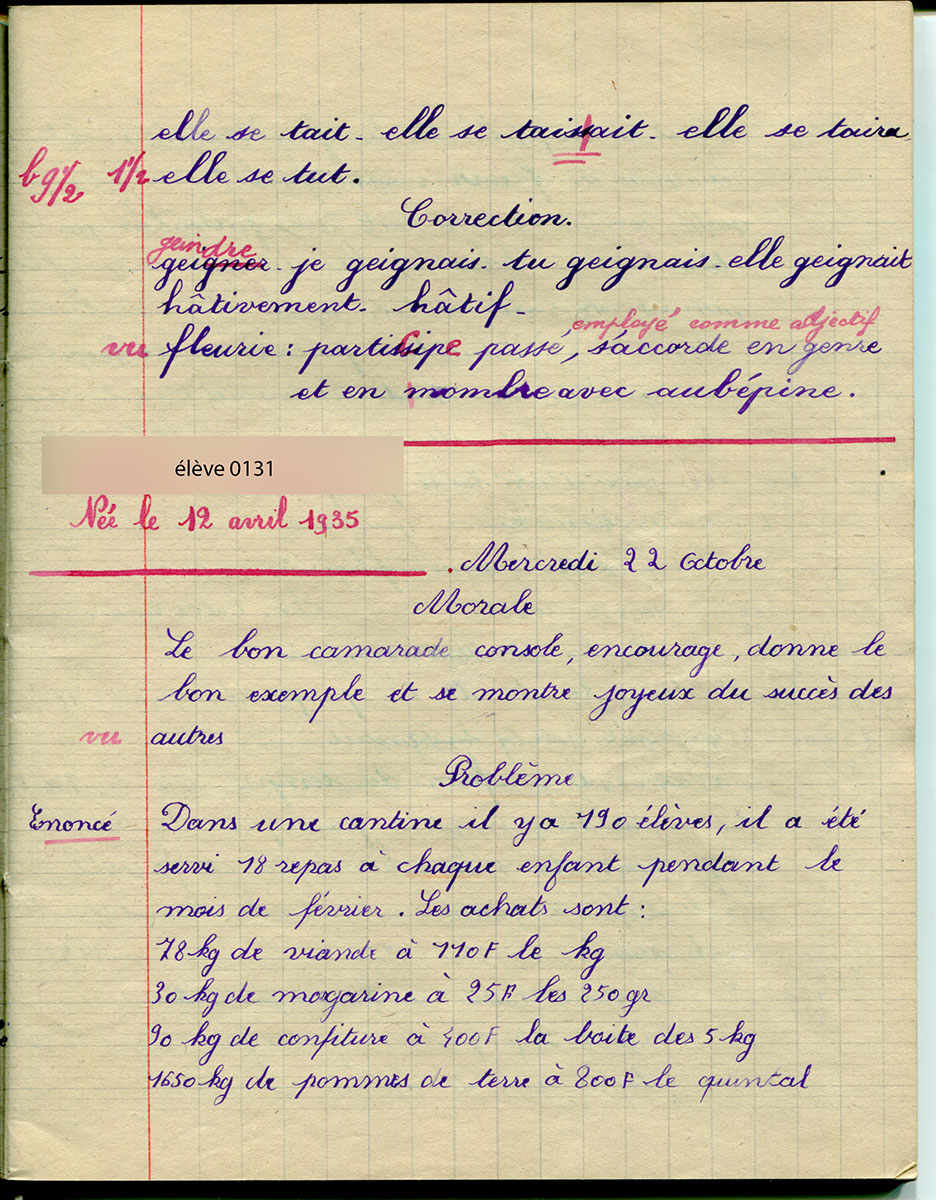 elle se tait - elle se taissait - elle se taira
b 9 1/2 1 1/2 elle se tut.
Correction.
geindre
geigner - je geignais - tu geignais - elle geignait
hâtivement - hâtif -
employé comme adjectif
vu fleurie : participe passé, s'accorde en genre
et en nombre avec aubépine.
élève 0131
Née le 12 avril 1935
Mercredi 22 Octobre
Morale
Le bon camarade console, encourage, donne le
bon exemple et se montre joyeux du succès des
vu autres
Problème
Enoncé Dans une cantine il y a 190 élèves, il a été
servi 18 repas à chaque enfant pendant le
mois de février. Les achats sont :
78 kg de viande à 110F le kg
30 kg de margarine à 25F les 250 gr
90 kg de confiture à 400F la boite des 5 kg
1650 kg de pommes de terre à 800F le quintal